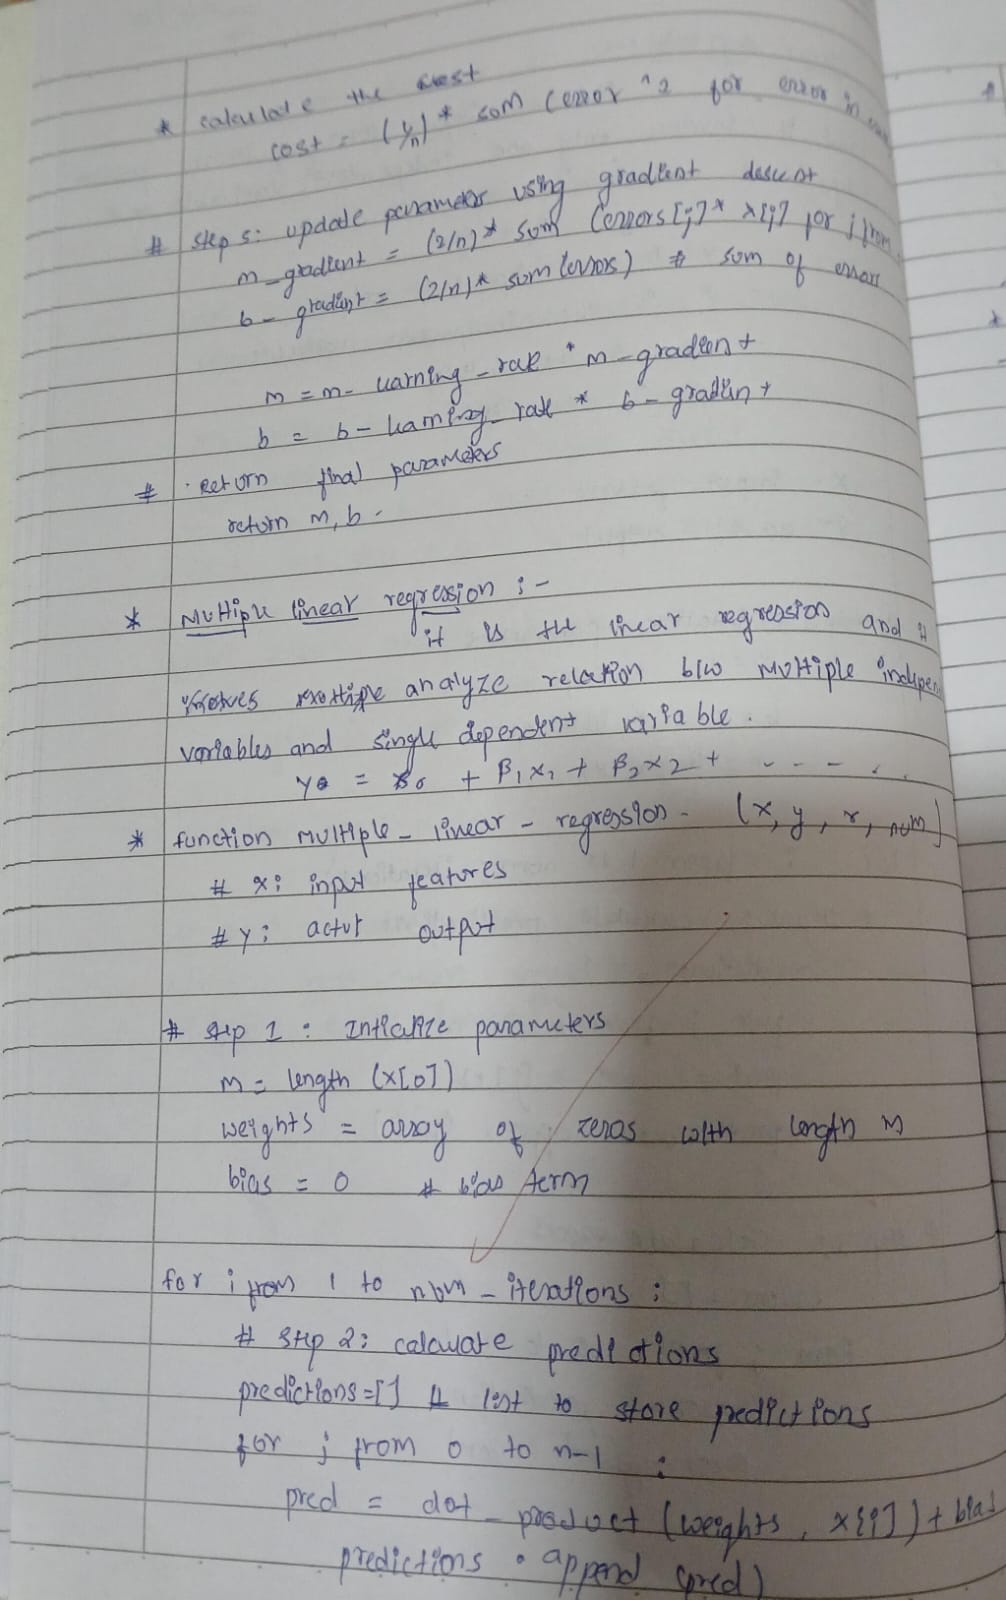 * calculate the cost
cost = (1/n) * sum (error ^2 for error in
# step 5: update parameters using gradient descent
m_gradient = (2/n) * sum (errors[j] * x[j] for j from
b_gradient = (2/n) * sum (errors) # sum of errors
m = m - learning_rate * m_gradient
b = b - learning_rate * b_gradient
# Return final parameters
return m, b.
* Multiple linear regression :-
it is the linear regression and it
involves analyze relation b/w multiple indepen
variables and single dependent variable.
y = β0 + β1x1 + β2x2 + - - - - . .
* function multiple_linear_regression_ (x, y, r, num)
# x: input features
# y: actul output
# step 1: Intialize parameters
m = length (x[0])
weights = array of zeros with length m
bias = 0 # bias term
for i from 1 to num_iterations :
# step 2: calculate predictions
predictions = [] # list to store predictions
for j from 0 to n-1 :
pred = dot_product (weights, x[j]) + bias
predictions.append (pred)